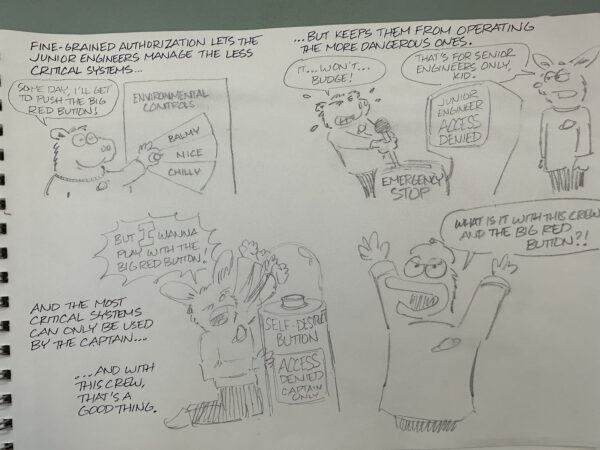 FINE-GRAINED AUTHORIZATION LETS THE
JUNIOR ENGINEERS MANAGE THE LESS
CRITICAL SYSTEMS...
SOME DAY, I'LL GET
TO PUSH THE BIG
RED BUTTON!
ENVIRONMENTAL
CONTROLS
BALMY
NICE
CHILLY
...BUT KEEPS THEM FROM OPERATING
THE MORE DANGEROUS ONES.
IT...WON'T...
BUDGE!
THAT'S FOR SENIOR
ENGINEERS ONLY,
KID.
JUNIOR
ENGINEER
ACCESS
DENIED
EMERGENCY
STOP
BUT I WANNA
PLAY WITH THE
BIG RED BUTTON.
SELF-DESTRUCT
BUTTON
ACCESS
DENIED
CAPTAIN
ONLY
AND THE MOST
CRITICAL SYSTEMS
CAN ONLY BE USED
BY THE CAPTAIN...
...AND WITH
THIS CREW,
THAT'S A
GOOD THING.
WHAT IS IT WITH THIS CREW
AND THE BIG RED
BUTTON?!